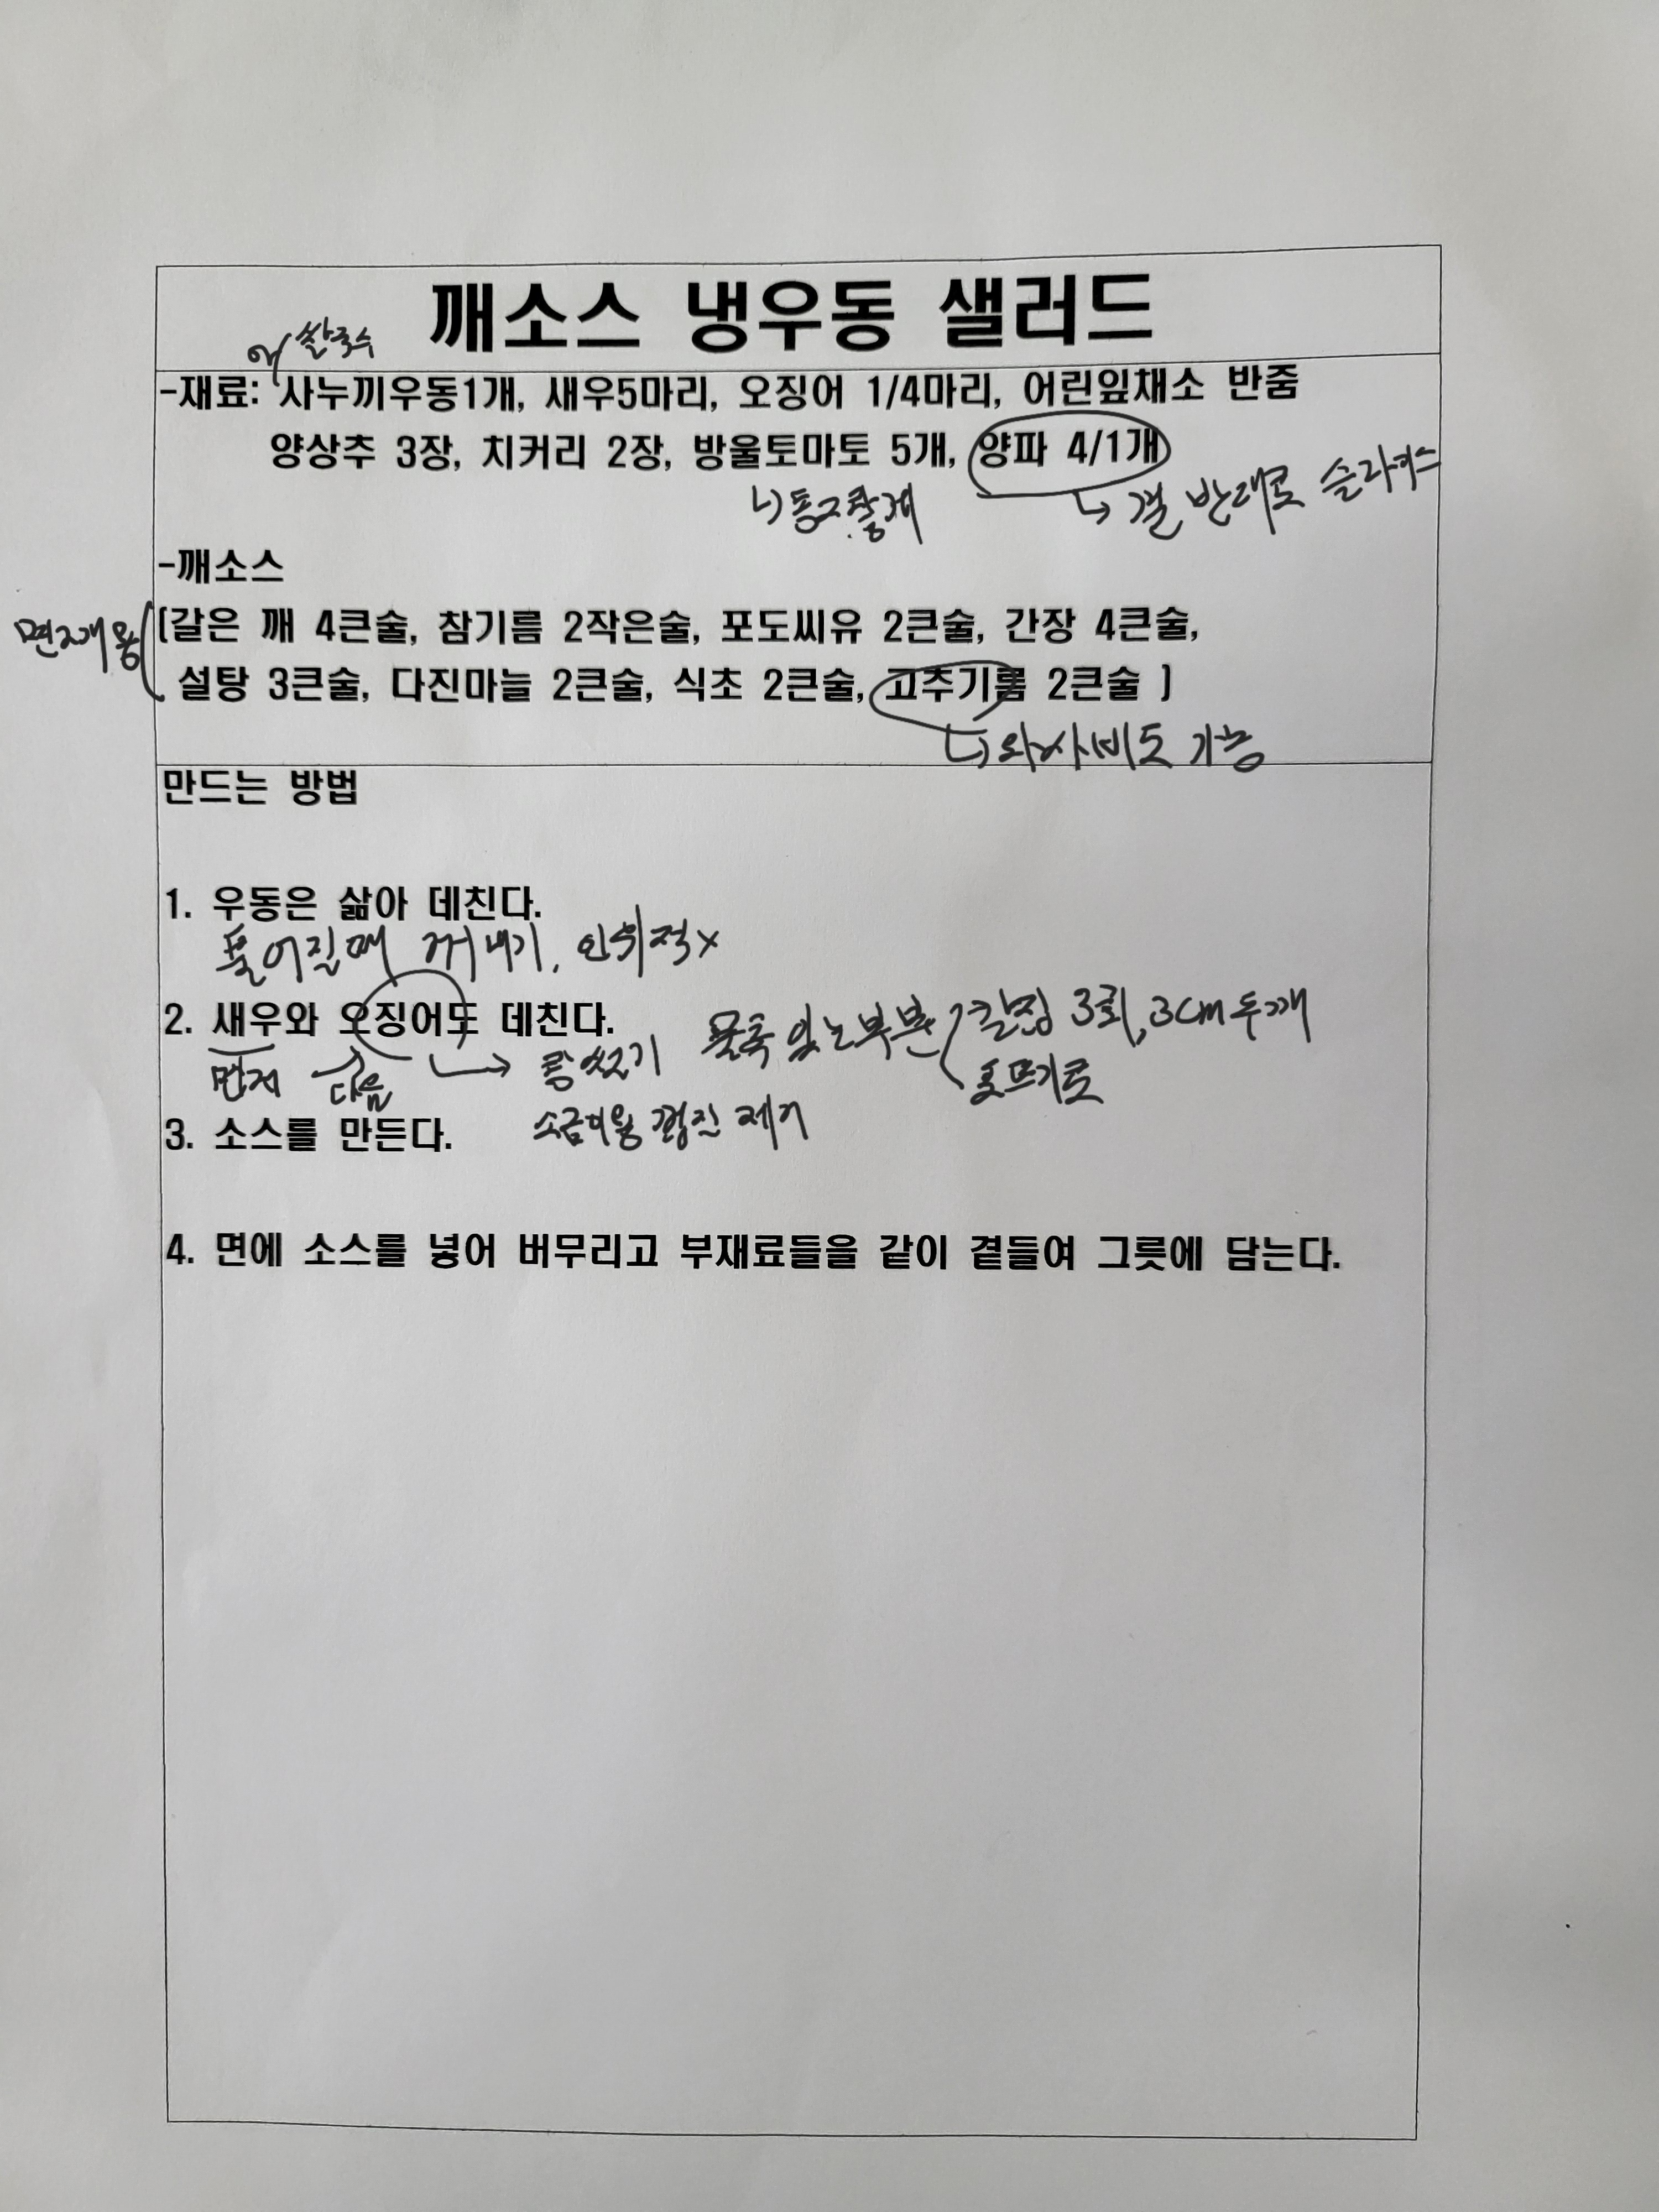 깨소스 냉우동 샐러드
쌀국수
-재료: 사누끼우동1개, 새우5마리, 오징어 1/4마리, 어린잎채소 반줌
양상추 3장, 치커리 2장, 방울토마토 5개, 양파 4/1개
동그랗게
결 반대로 슬라이스
-깨소스
면2개용
(갈은 깨 4큰술, 참기름 2작은술, 포도씨유 2큰술, 간장 4큰술,
설탕 3큰술, 다진마늘 2큰술, 식초 2큰술, 고추기름 2큰술 )
와사비도 가능
만드는 방법
1. 우동은 삶아 데친다.
풀어질때 꺼내기, 인위적x
2. 새우와 오징어도 데친다.
먼저 다음
있는부분 칼집 3회, 3cm두께
포뜨기로
3. 소스를 만든다.
소금이용 껍질 제거
4. 면에 소스를 넣어 버무리고 부재료들을 같이 곁들여 그릇에 담는다.